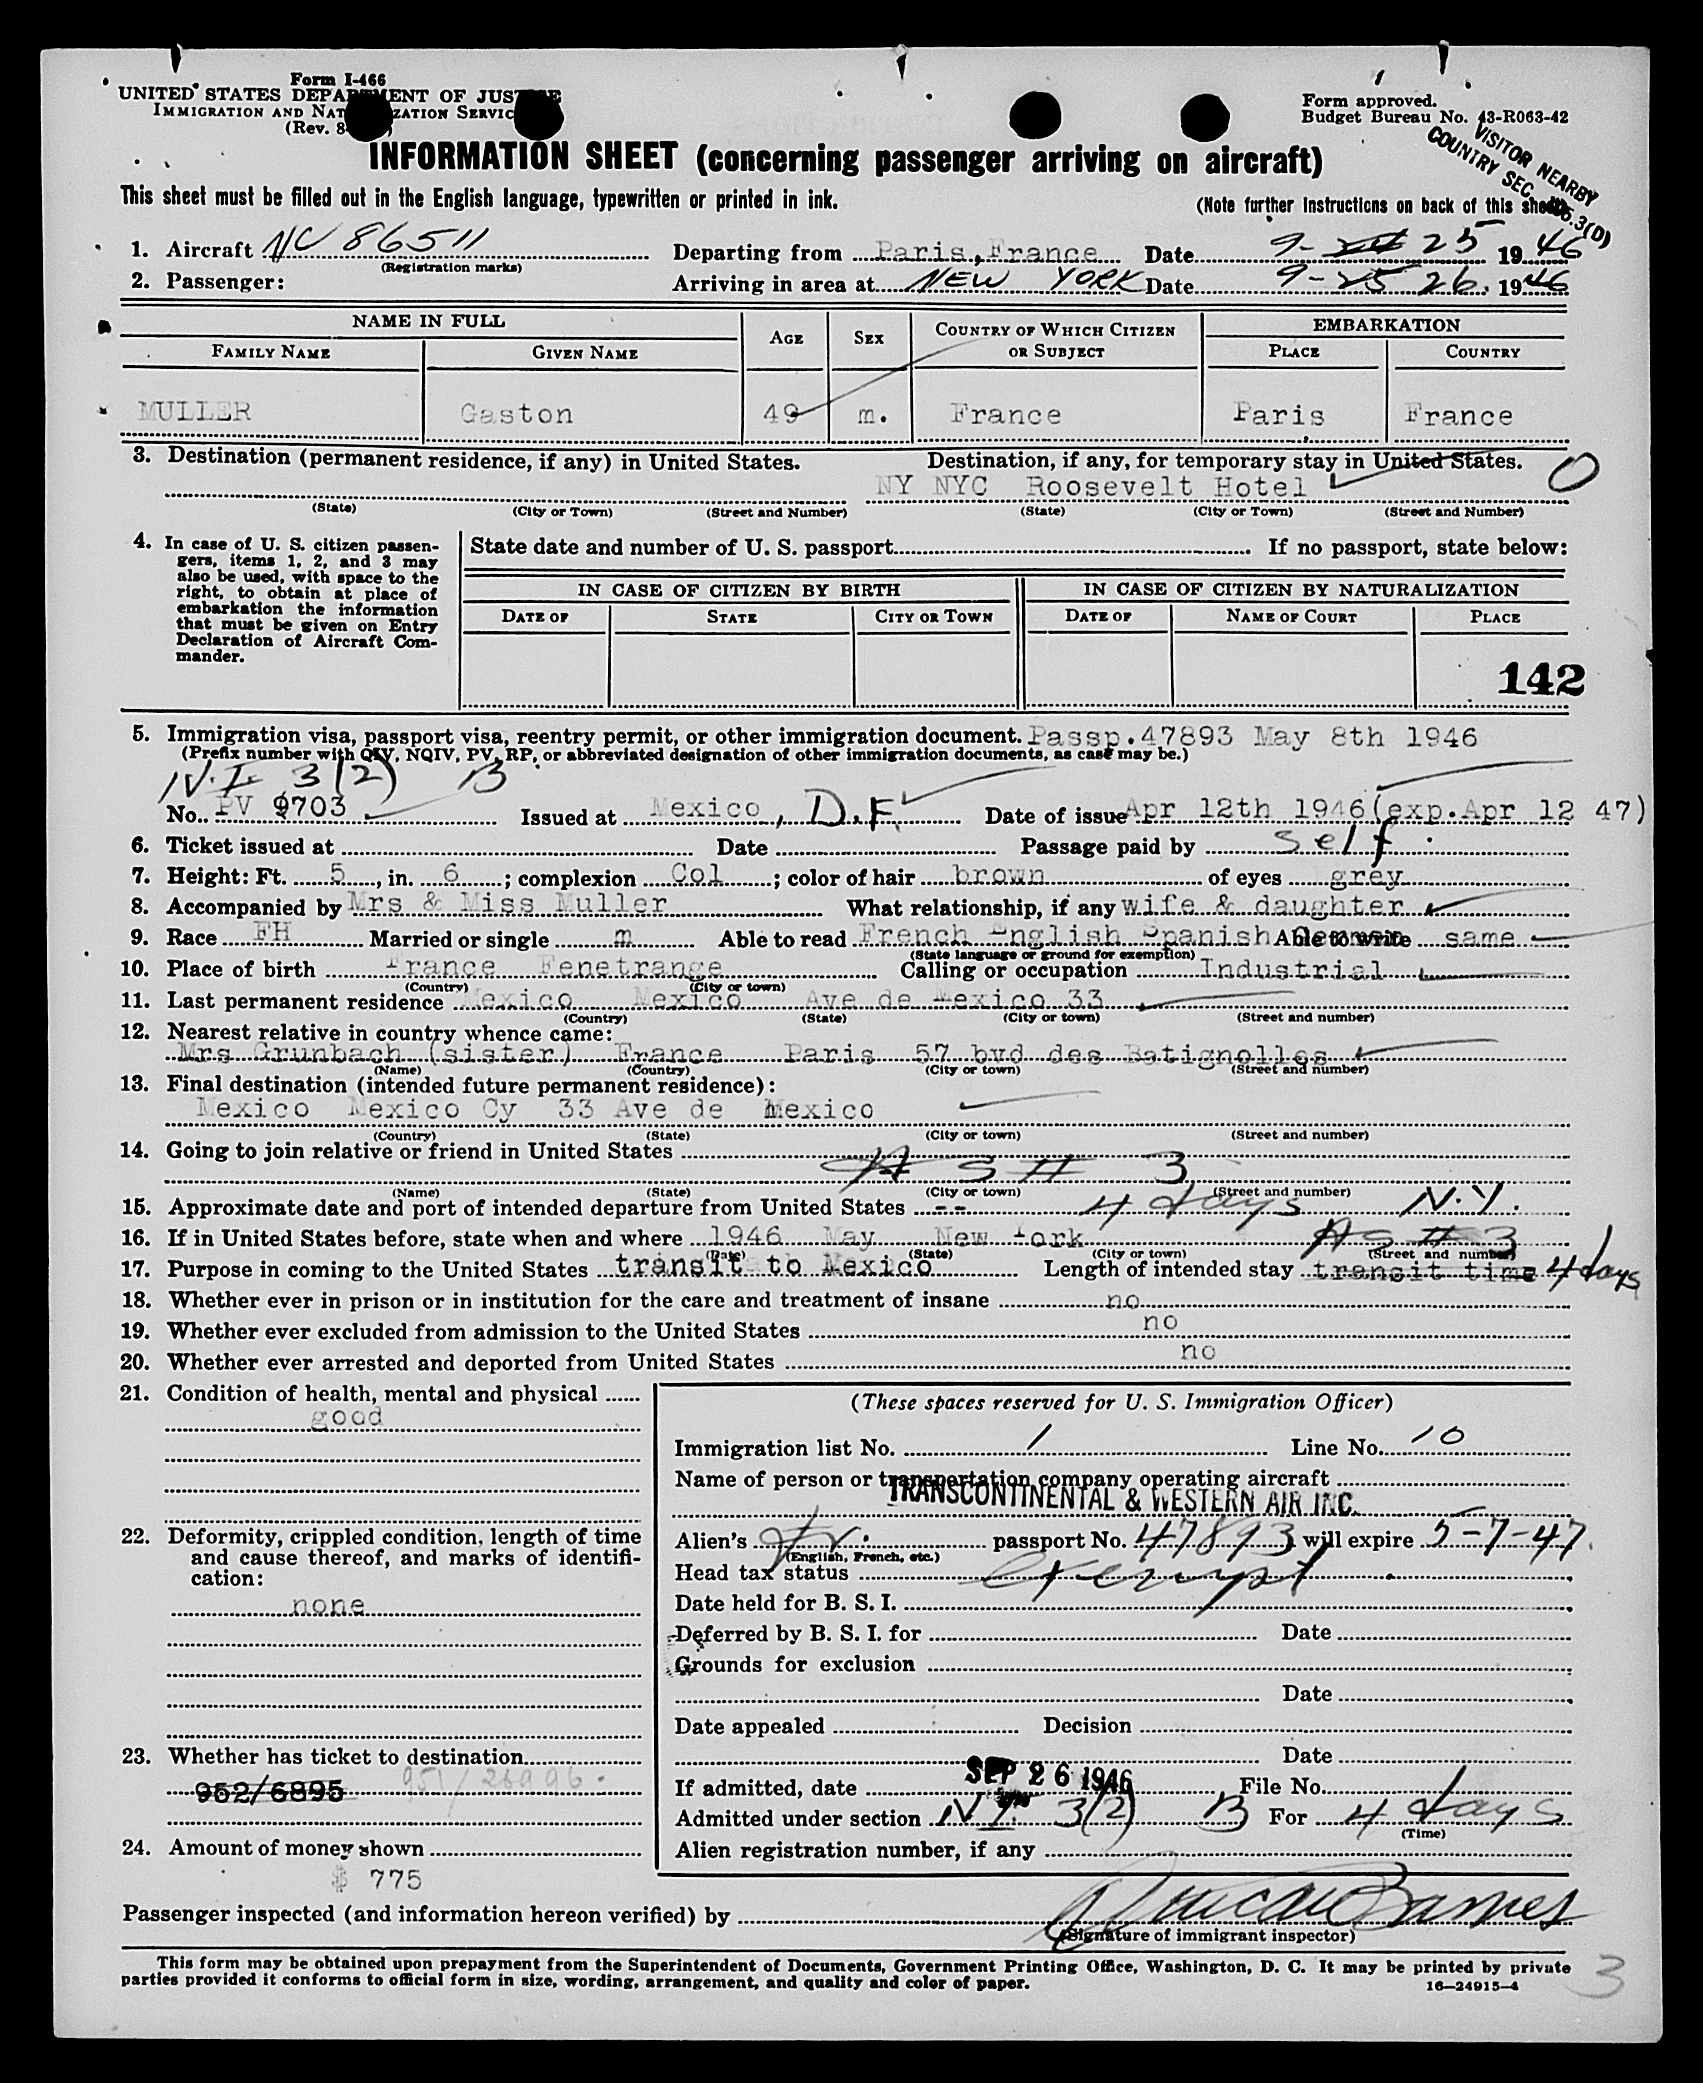 Form I-466
UNITED STATES DEPARTMENT OF JUSTICE
IMMIGRATION AND NATURALIZATION SERVICE
(Rev. 8-
Form approved.
Budget Bureau No. 43-R063-42
VISITOR NEARBY
COUNTRY SEC. 3(D)
INFORMATION SHEET (concerning passenger arriving on aircraft)
This sheet must be filled out in the English language, typewritten or printed in ink. (Note further instructions on back of this sheet)
1. Aircraft NC 86511 Departing from Paris, France Date 9- 25 1946
(Registration marks)
2. Passenger: Arriving in area at NEW YORK Date 9-25 26. 1946
NAME IN FULL AGE SEX COUNTRY OF WHICH CITIZEN OR SUBJECT EMBARKATION
FAMILY NAME GIVEN NAME PLACE COUNTRY
MULLER Gaston 49 m. France Paris France
3. Destination (permanent residence, if any) in United States. Destination, if any, for temporary stay in United States. O
NY NYC Roosevelt Hotel
(State) (City or Town) (Street and Number) (State) (City or Town) (Street and Number)
4. In case of U. S. citizen passengers, items 1, 2, and 3 may also be used, with space to the right, to obtain at place of embarkation the information that must be given on Entry Declaration of Aircraft Commander.
State date and number of U. S. passport If no passport, state below:
IN CASE OF CITIZEN BY BIRTH IN CASE OF CITIZEN BY NATURALIZATION
DATE OF STATE CITY OR TOWN DATE OF NAME OF COURT PLACE
142
5. Immigration visa, passport visa, reentry permit, or other immigration document. Passp.47893 May 8th 1946
(Prefix number with QIV, NQIV, PV, RP, or abbreviated designation of other immigration documents, as case may be.)
N.I. 3(2) B
No. PV 9703 Issued at Mexico, D.F. Date of issue Apr 12th 1946(exp.Apr 12 47)
6. Ticket issued at Date Passage paid by Self
7. Height: Ft. 5, in. 6; complexion Col; color of hair brown of eyes grey
8. Accompanied by Mrs & Miss Muller What relationship, if any wife & daughter
9. Race FH Married or single m Able to read French English Spanish German Able to write same
(State language or ground for exemption)
10. Place of birth France Fenetrange Calling or occupation Industrial
(Country) (City or town)
11. Last permanent residence Mexico Mexico Ave de Mexico 33
(Country) (State) (City or town) (Street and number)
12. Nearest relative in country whence came:
Mrs Grunbach (sister) France Paris 57 bvd des Batignolles
(Name) (Country) (City or town) (Street and number)
13. Final destination (intended future permanent residence):
Mexico Mexico Cy 33 Ave de Mexico
(Country) (State) (City or town) (Street and number)
14. Going to join relative or friend in United States
AS # 3
(Name) (State) (City or town) (Street and number)
15. Approximate date and port of intended departure from United States -- 4 days N.Y.
16. If in United States before, state when and where 1946 May New York AS # 3
(Date) (State) (City or town) (Street and number)
17. Purpose in coming to the United States transit to Mexico Length of intended stay transit time 4 days
18. Whether ever in prison or in institution for the care and treatment of insane no
19. Whether ever excluded from admission to the United States no
20. Whether ever arrested and deported from United States no
21. Condition of health, mental and physical
good
22. Deformity, crippled condition, length of time and cause thereof, and marks of identification:
none
23. Whether has ticket to destination
952/6895 951/26996.
24. Amount of money shown
$ 775
(These spaces reserved for U. S. Immigration Officer)
Immigration list No. 1 Line No. 10
Name of person or transportation company operating aircraft
TRANSCONTINENTAL & WESTERN AIR INC.
Alien's Fr. passport No. 47893 will expire 5-7-47.
(English, French, etc.)
Head tax status exempt
Date held for B. S. I.
Deferred by B. S. I. for Date
Grounds for exclusion
Date
Date appealed Decision
Date
If admitted, date SEP 26 1946 File No.
Admitted under section N.I. 3(2) B For 4 days
(Time)
Alien registration number, if any
Passenger inspected (and information hereon verified) by Duncan Barnes
(Signature of immigrant inspector)
This form may be obtained upon prepayment from the Superintendent of Documents, Government Printing Office, Washington, D. C. It may be printed by private
parties provided it conforms to official form in size, wording, arrangement, and quality and color of paper.
16—24915-4
3